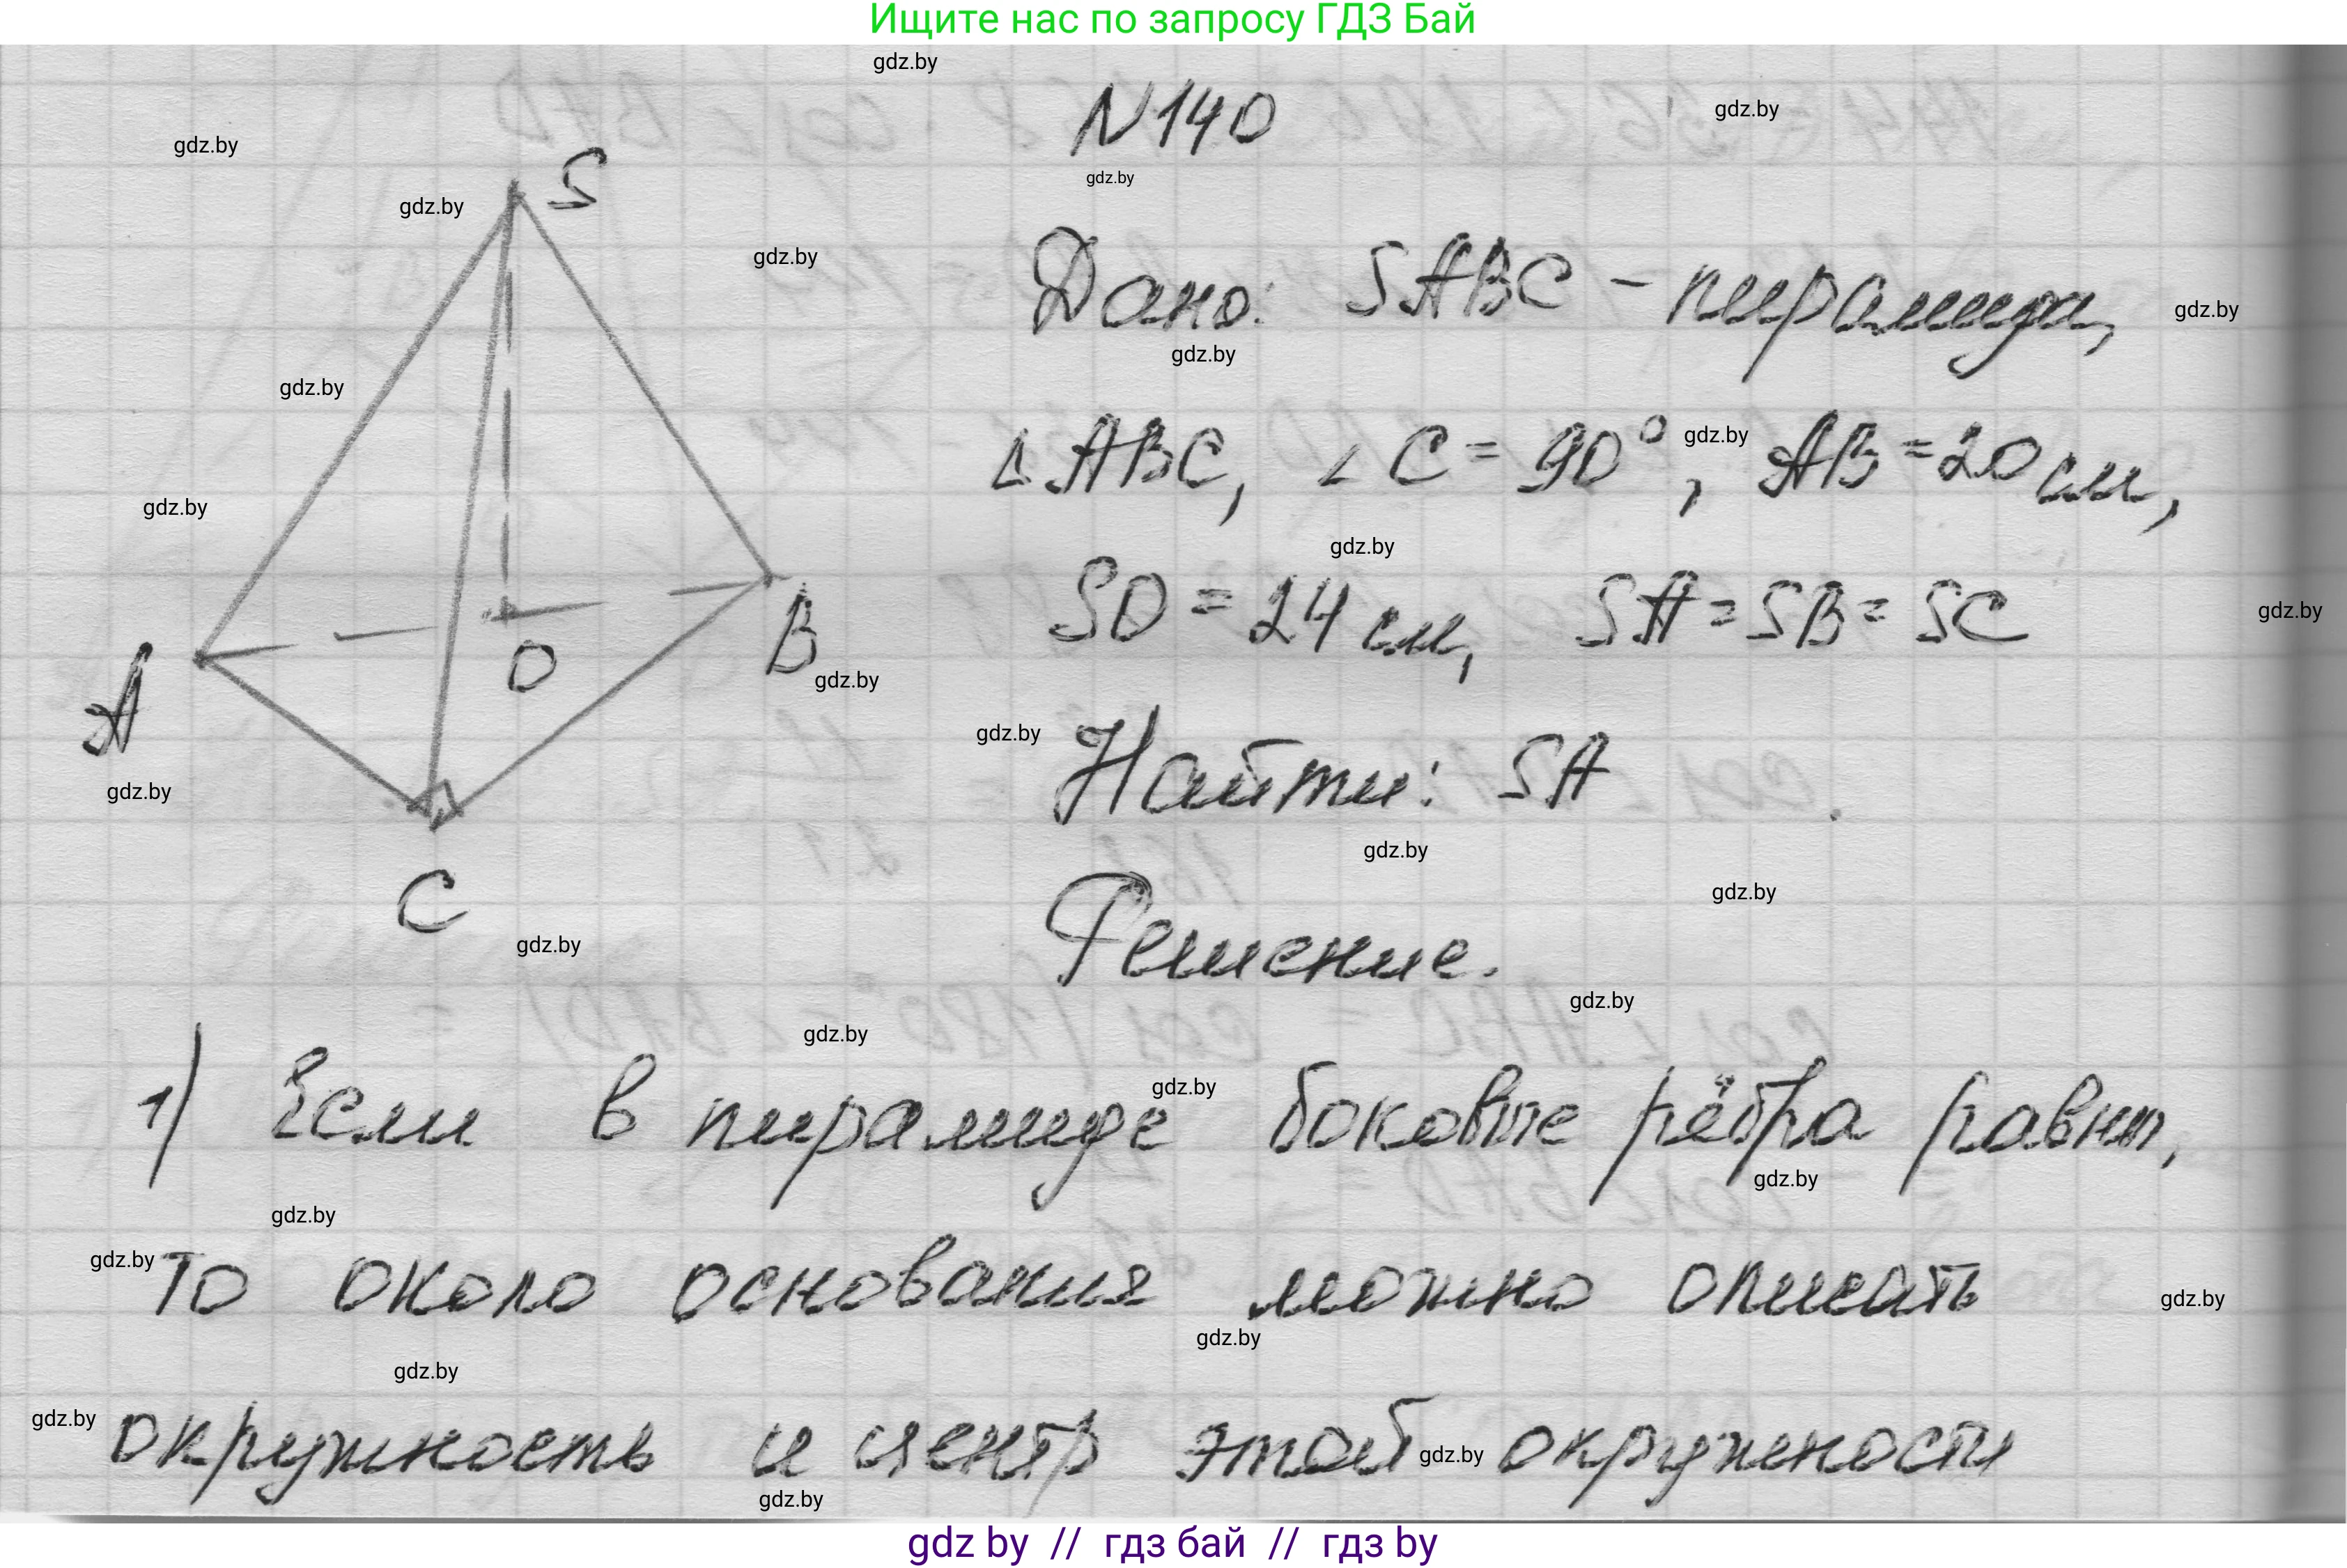 Ищите нас по запросу ГДЗ Бай
gdz.by
N140
gdz.by
gdz.by
gdz.by
S
gdz.by
gdz.by
Дано: SABC - пирамида,
gdz.by
gdz.by
gdz.by
△ABC, ∠C = 90°, AB = 20 см,
gdz.by
gdz.by
gdz.by
SO = 24 см, SA = SB = SC
gdz.by
A
O
B
gdz.by
gdz.by
Найти: SA
gdz.by
gdz.by
C
gdz.by
gdz.by
Решение.
gdz.by
gdz.by
gdz.by
1) Если в пирамиде боковые рёбра равны,
gdz.by
gdz.by
gdz.by
то около основания можно описать
gdz.by
gdz.by
gdz.by
gdz.by
окружность и центр этой окружности
gdz.by
gdz.by
gdz by // гдз бай // гдз by